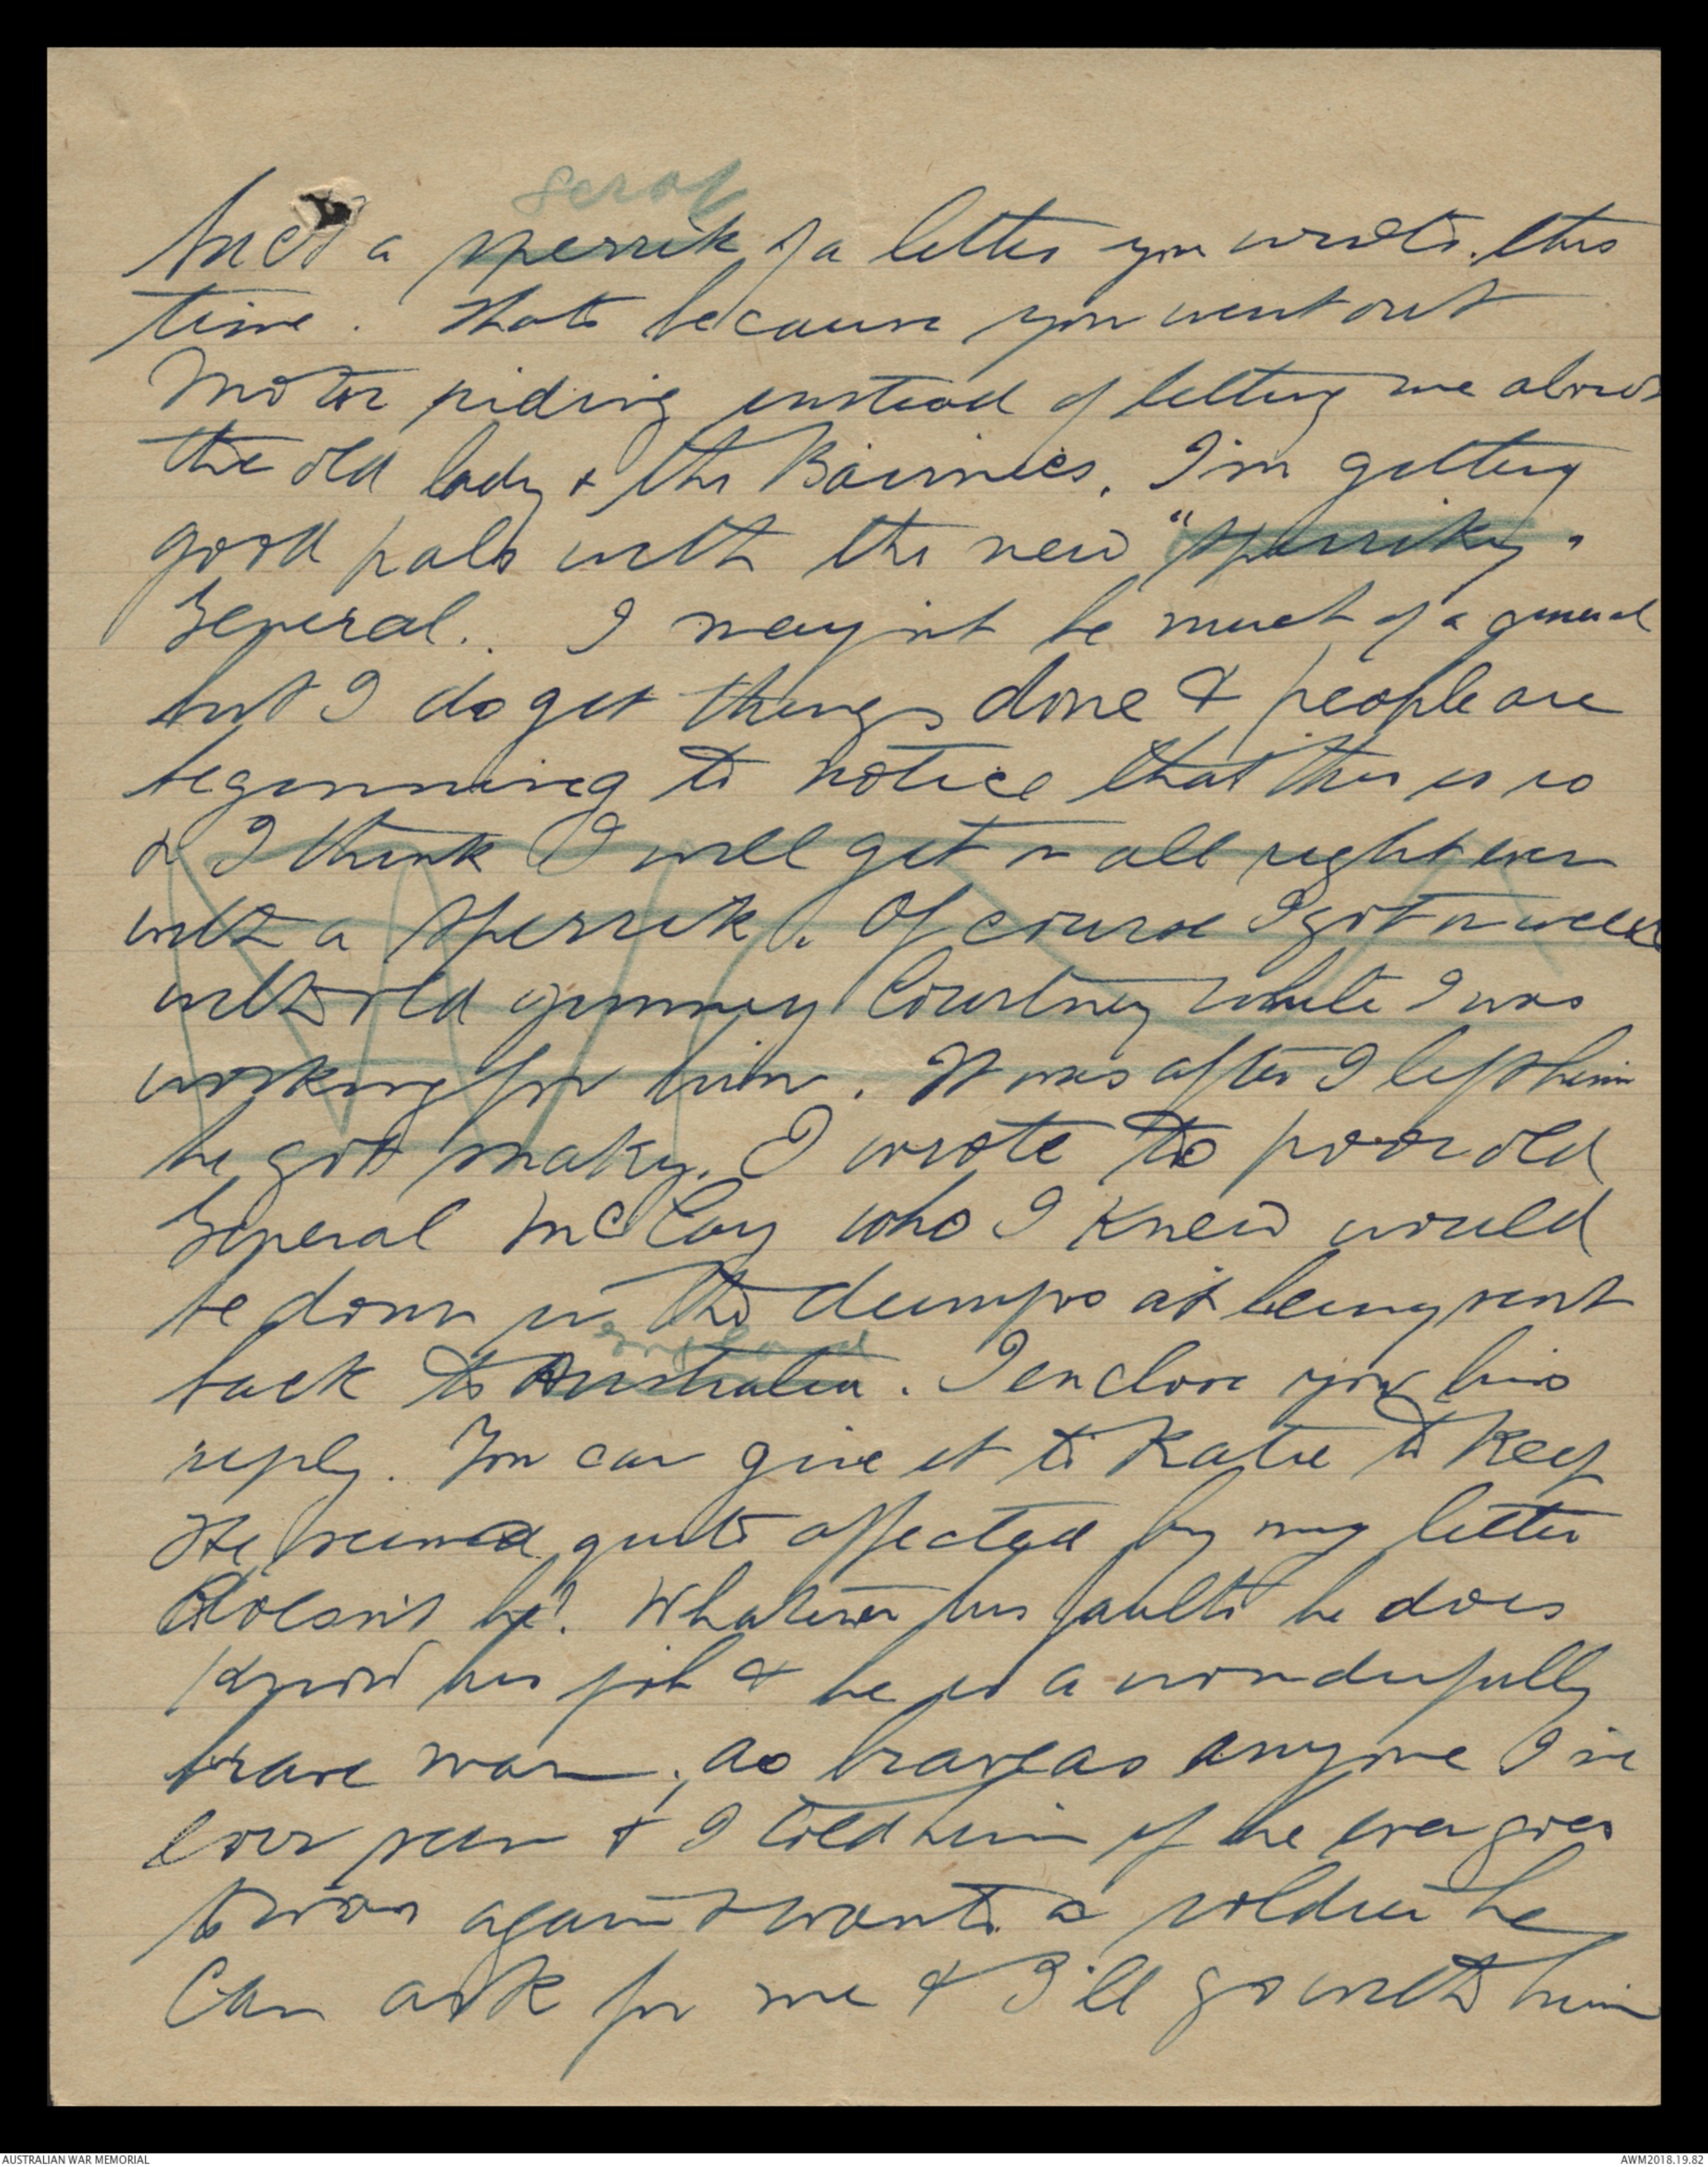 scrap
a sperrik of a letter you wrote this
time. Thats because you went out
Motor riding instead of telling me about
the old lady & the Bairnies. I'm getting
good pals with the new "sperriky"
General. I mayint be much of a general
but I do get things done & people are
beginning to notice that this is so
& I think I will get on all right even
with a sperrik. Of course I got on well
with old gimmey Courtney while I was
working for him. It was after I left him
he got snaky. I wrote to poor old
General McCay who I knew would
be down in the dumps at being sent
England
back to Australia. I enclose you his
reply. You can give it to Katie to keep
He seemed quite affected by my letter
doesn't he? Whatever his faults he does
know his job & he is a wonderfully
brave man, as brave as anyone I've
ever seen & I told him if he ever goes
to war again & wants a soldier he
can ask for me & I'll go with him
AUSTRALIAN WAR MEMORIAL
AWM2018.19.82